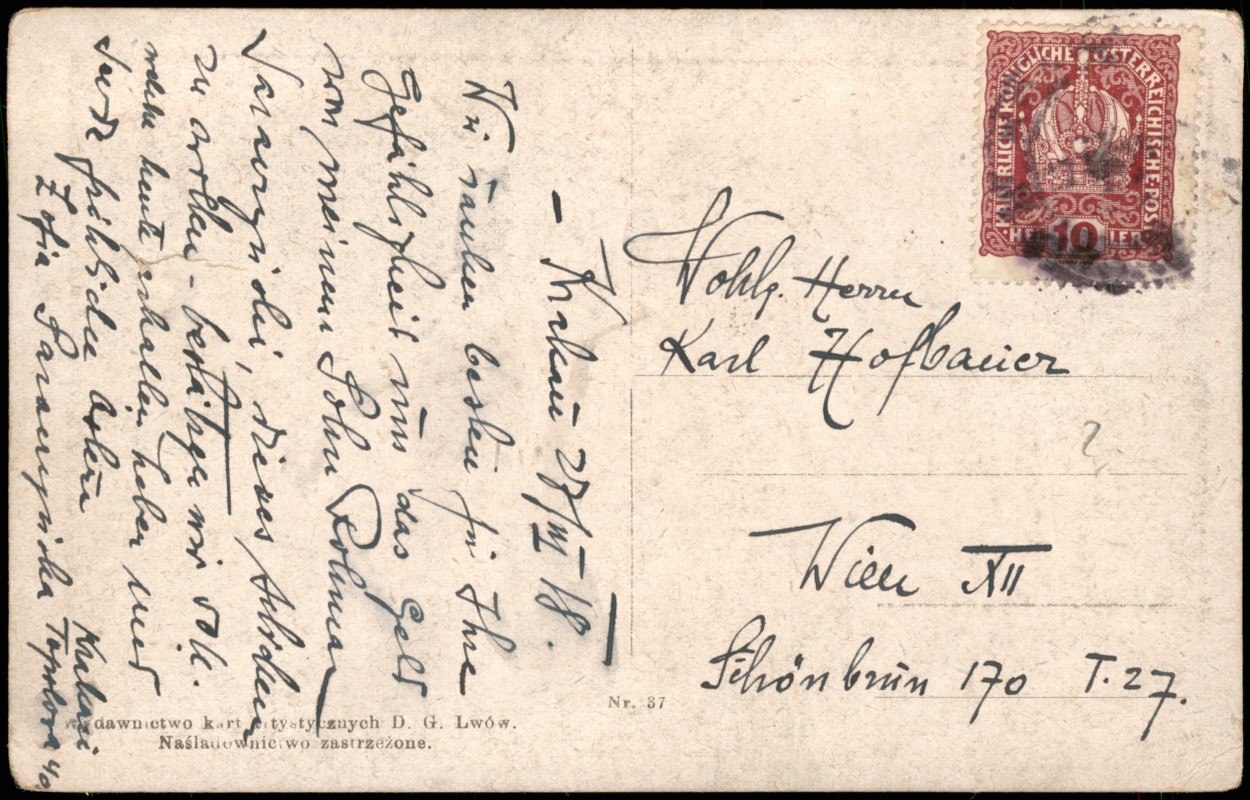 Krakau 27/VI 18.
Wir danken besten für Ihre
Gefähligkeit uns das Geld
von meinem Sohn Roman
Saraczynski, dieses schicken
zu wollen - bestätigen wir
welche heute erhalten haben und
Sende fröhliche
Zofia Saraczynska
Krakau
Topolowa 40
Wohlg. Herrn
Karl Hofbauer
Wien XII
Schönbrun 170 T. 27.
KAISERLICHE KÖNIGLICHE ÖSTERREICHISCHE POST
HELLER
10
Nr. 37
Wydawnictwo kart artystycznych D. G. Lwów.
Naśladownictwo zastrzeżone.